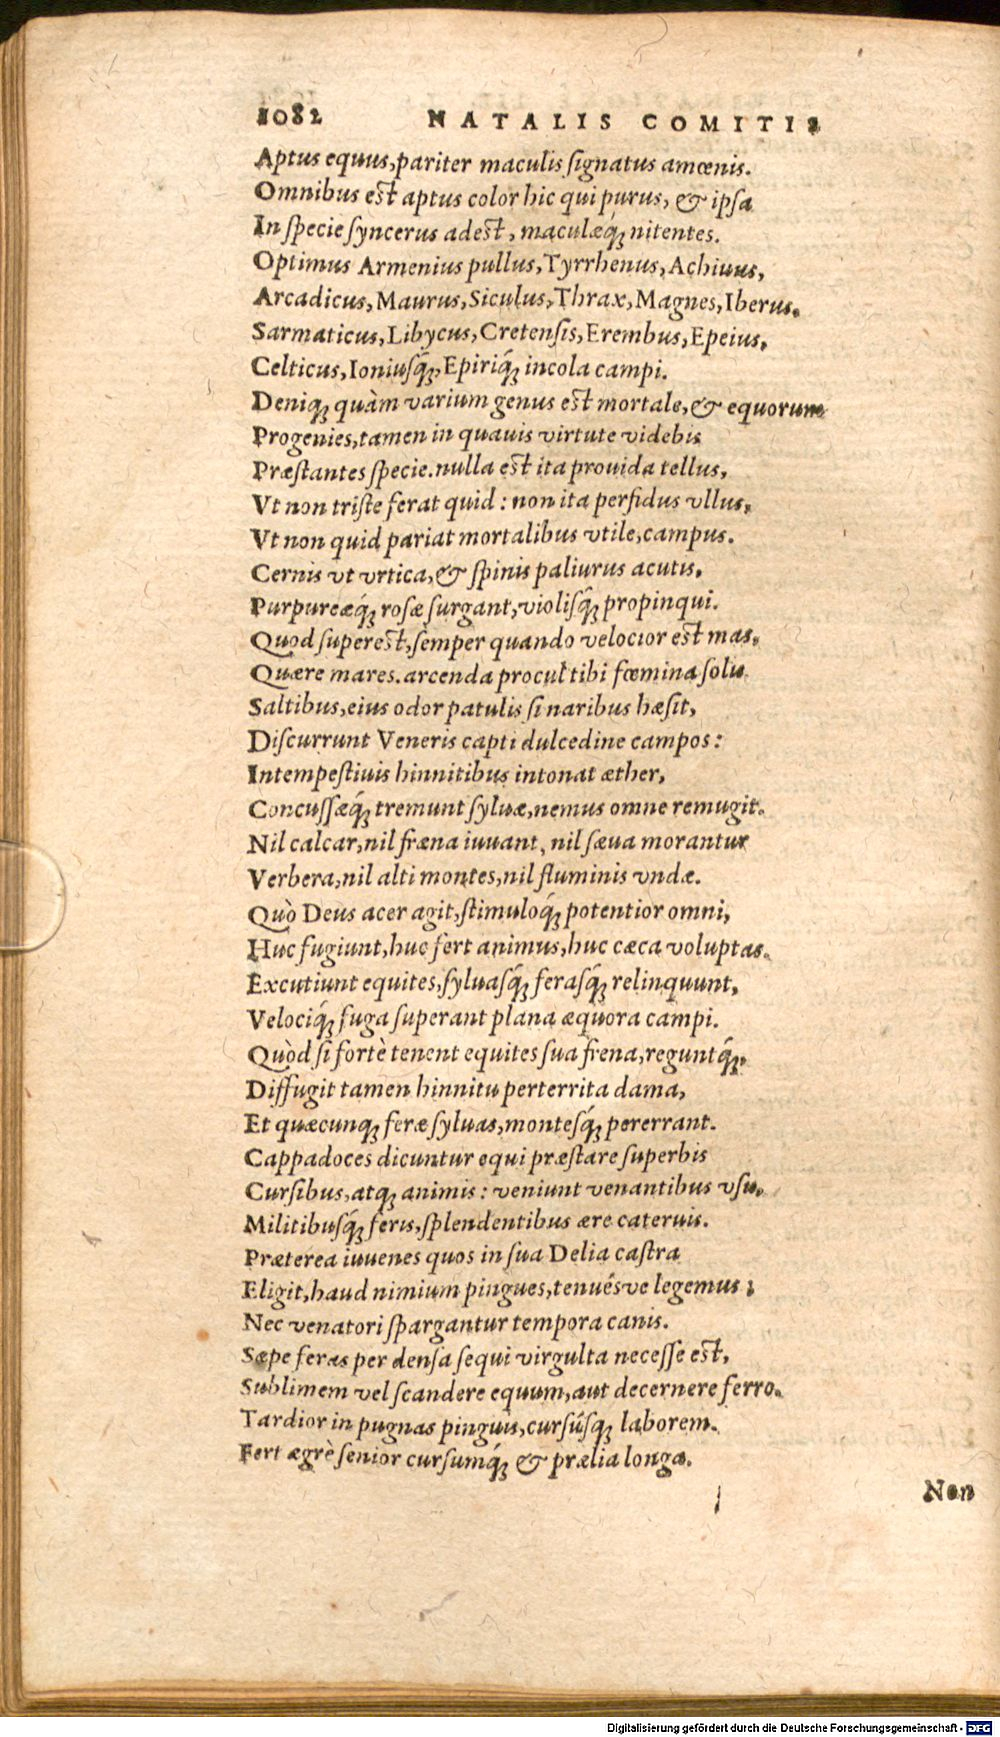 1082 NATALIS COMITIS
Aptus equus, pariter maculis ſignatus amœnis.
Omnibus eſt aptus color hic qui purus, & ipſa
In ſpecie ſyncerus adeſt, maculæq́; nitentes.
Optimus Armenius pullus, Tyrrhenus, Achiuus,
Arcadicus, Maurus, Siculus, Thrax, Magnes, Iberus.
Sarmaticus, Libycus, Cretenſis, Erembus, Epeius,
Celticus, Ioniuſq́;, Epiriq́; incola campi.
Deniq; quàm varium genus eſt mortale, & equorum
Progenies, tamen in quauis virtute videbis
Præſtantes ſpecie. nulla eſt ita prouida tellus,
Vt non triſte ferat quid: non ita perfidus vllus,
Vt non quid pariat mortalibus vtile, campus.
Cernis vt vrtica, & ſpinis paliurus acutis,
Purpureæq́; roſæ ſurgant, violiſq́; propinqui.
Quod ſupereſt, ſemper quando velocior eſt mas,
Quære mares. arcenda procul tibi fœmina ſolis
Saltibus, eius odor patulis ſi naribus hæſit,
Diſcurrunt Veneris capti dulcedine campos:
Intempeſtiuis hinnitibus intonat æther,
Concuſſæq́; tremunt ſyluæ, nemus omne remugit.
Nil calcar, nil fræna iuuant, nil ſæua morantur
Verbera, nil alti montes, nil fluminis vndæ.
Quò Deus acer agit, ſtimuloq́; potentior omni,
Huc fugiunt, huc fert animus, huc cæca voluptas.
Excutiunt equites, ſyluaſq́; feraſq́; relinquunt,
Velociq́; fuga ſuperant plana æquora campi.
Quòd ſi fortè tenent equites ſua frena, reguntq́;,
Diffugit tamen hinnitu perterrita dama,
Et quæcunq; feræ ſyluas, monteſq́; pererrant.
Cappadoces dicuntur equi præſtare ſuperbis
Curſibus, atq; animis: veniunt venantibus vſu,
Militibuſq́; feris, ſplendentibus ære cateruis.
Præterea iuuenes quos in ſua Delia caſtra
Eligit, haud nimium pingues, tenuéſve legemus;
Nec venatori ſpargantur tempora canis.
Sæpe feras per denſa ſequi virgulta neceſſe eſt,
Sublimem vel ſcandere equum, aut decernere ferro.
Tardior in pugnas pinguis, curſúſq; laborem.
Fert ægrè ſenior curſumq́; & prælia longa.
Non
Digitalisierung gefördert durch die Deutsche Forschungsgemeinschaft - DFG